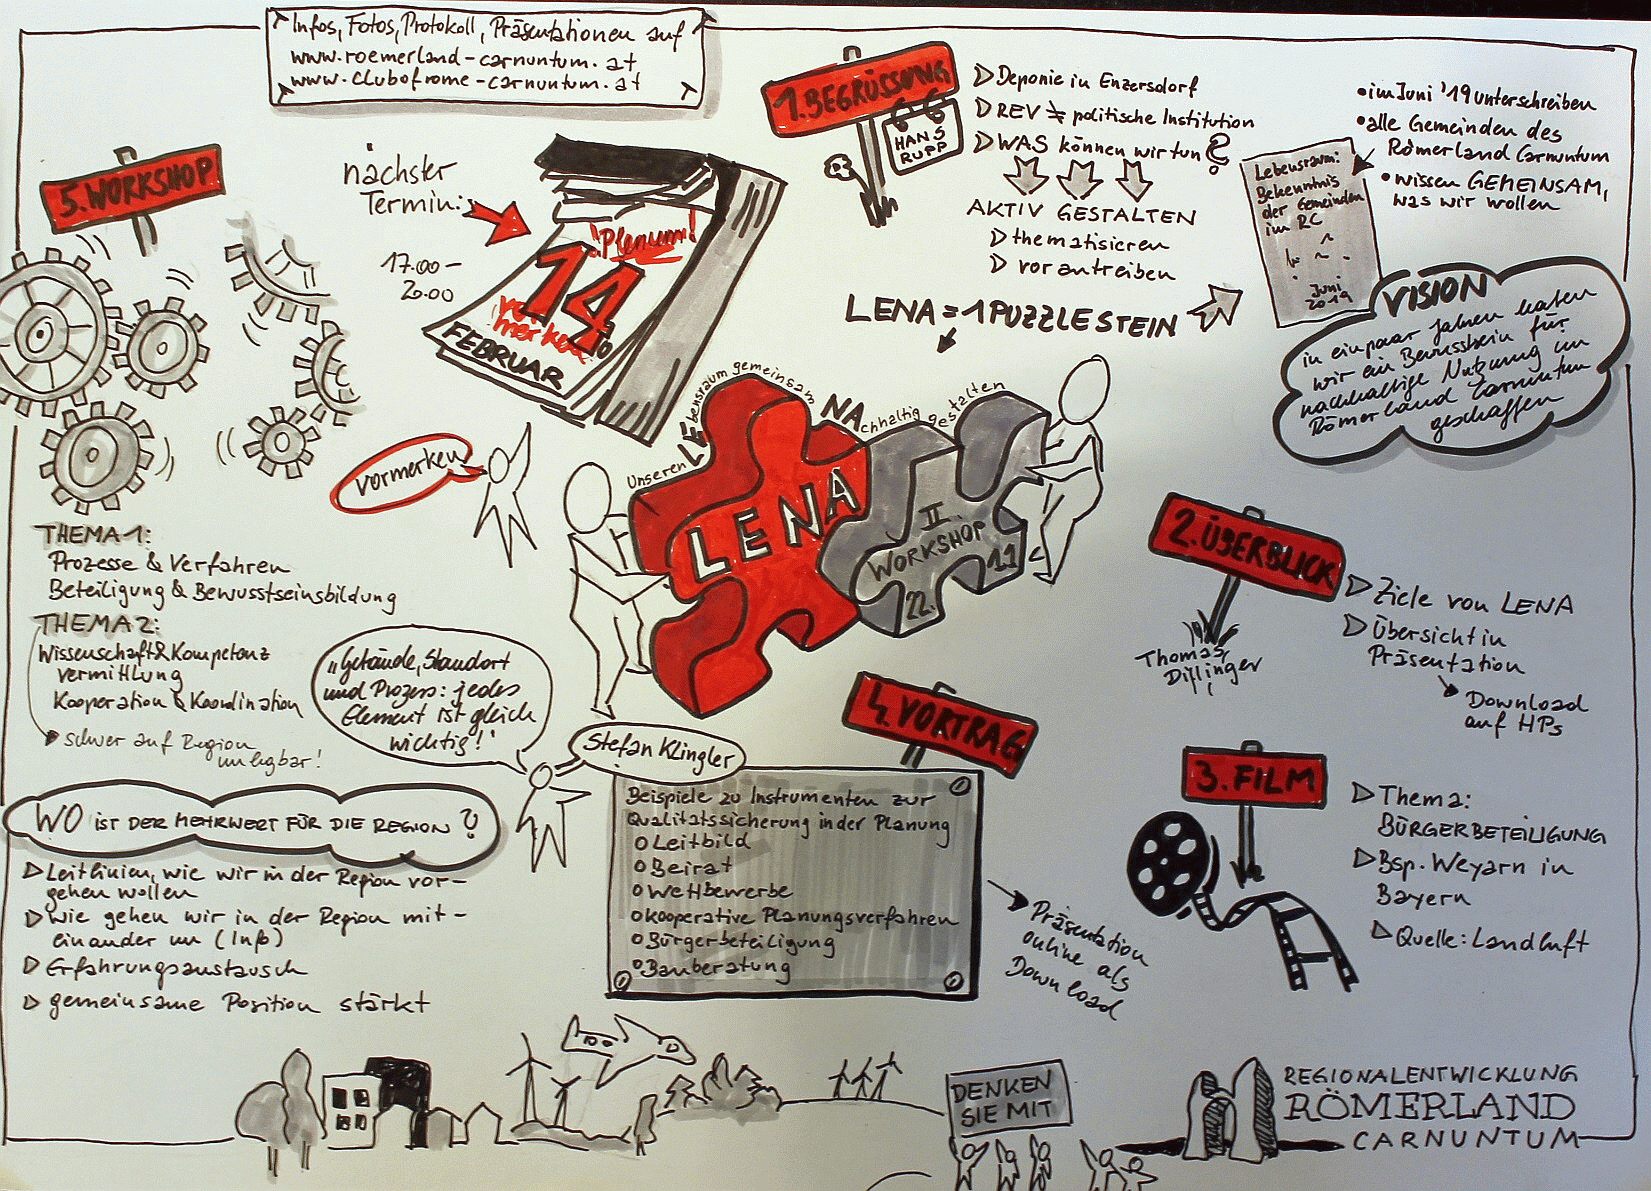 Infos, Fotos, Protokoll, Präsentationen auf
www.roemerland-carnuntum.at
www.clubofrome-carnuntum.at
1. BEGRÜSSUNG
HANS
RUPP
Deponie in Enzersdorf
REV ≠ politische Institution
WAS können wir tun?
AKTIV GESTALTEN
thematisieren
vorantreiben
LENA = 1 PUZZLESTEIN
• im Juni '19 unterschreiben
• alle Gemeinden des
Römerland Carnuntum
• wissen GEMEINSAM,
was wir wollen
Lebensraum:
Bekenntnis
der Gemeinden
im RC
Juni
2019
VISION
in ein paar Jahren haben
wir ein Bewusstsein für
nachhaltige Nutzung im
Römerland Carnuntum
geschaffen
nächster
Termin:
17.00–
20.00
Plenum!
14.
vormerken
FEBRUAR
vormerken
Unseren LEbensraum gemeinsam NAchhaltig gestalten
LENA
II.
WORKSHOP
22. 11
2. ÜBERBLICK
Thomas
Dillinger
Ziele von LENA
Übersicht in
Präsentation
Download
auf HPs
3. FILM
Thema:
BÜRGERBETEILIGUNG
Bsp. Weyarn in
Bayern
Quelle: Landluft
4. VORTRAG
Stefan Klingler
"Gebäude, Standort
und Prozess: jedes
Element ist gleich
wichtig!"
Beispiele zu Instrumenten zur
Qualitätssicherung in der Planung
o Leitbild
o Beirat
o Wettbewerbe
o kooperative Planungsverfahren
o Bürgerbeteiligung
o Bauberatung
Präsentation
online als
Download
5. WORKSHOP
THEMA 1:
Prozesse & Verfahren
Beteiligung & Bewusstseinsbildung
THEMA 2:
Wissenschaft & Kompetenz
vermittlung
Kooperation & Koordination
schwer auf Region
umlegbar!
WO IST DER MEHRWERT FÜR DIE REGION?
Leitlinien, wie wir in der Region vor-
gehen wollen
wie gehen wir in der Region mit-
einander um (Info)
Erfahrungsaustausch
gemeinsame Position stärkt
DENKEN
SIE MIT
REGIONALENTWICKLUNG
RÖMERLAND
CARNUNTUM